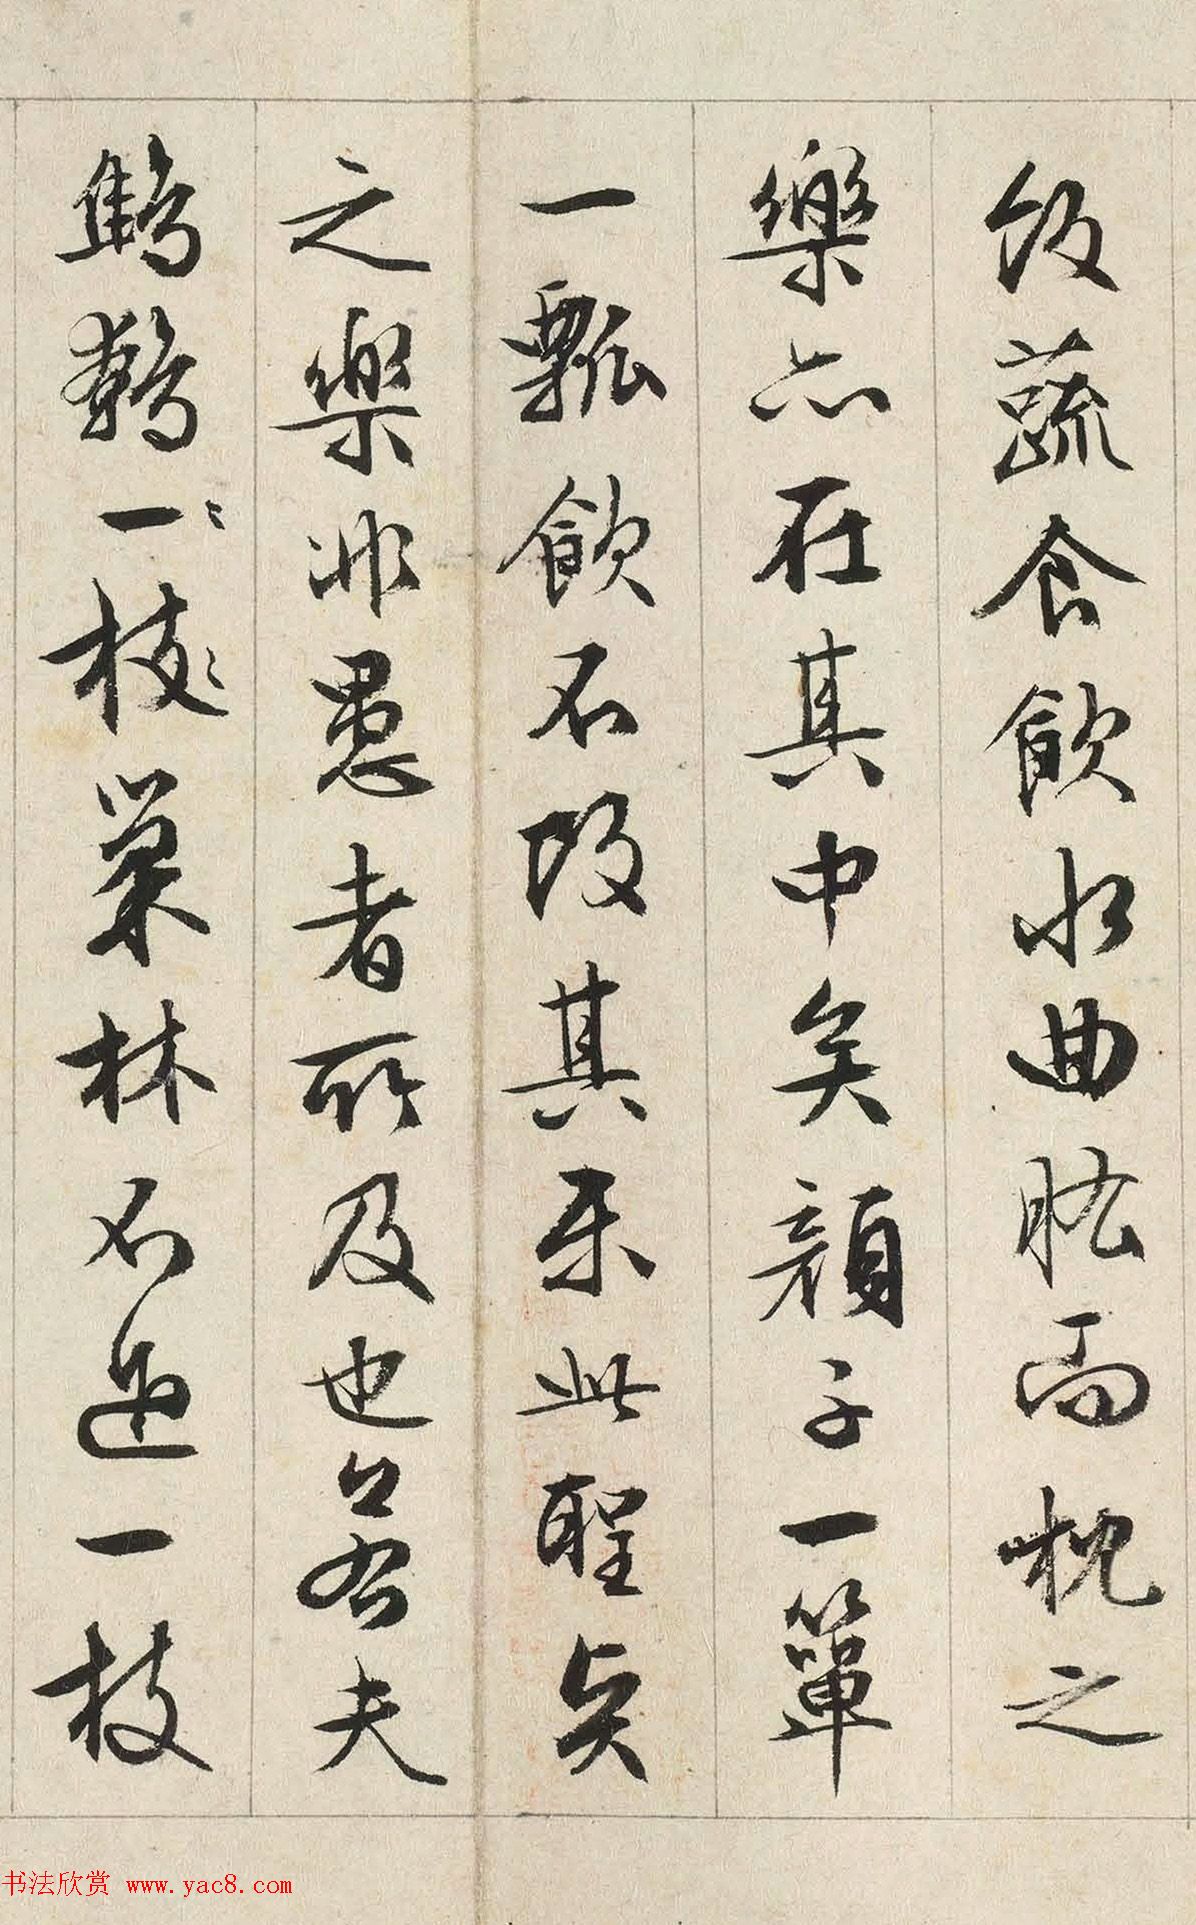 飯蔬食飲水曲肱而枕之
樂亦在其中矣顏子一簞
一瓢飲不改其樂此聖賢
之樂非愚者所及也若夫
鷦鷯一枝巢林不過一枝
书法欣赏 www.yac8.com